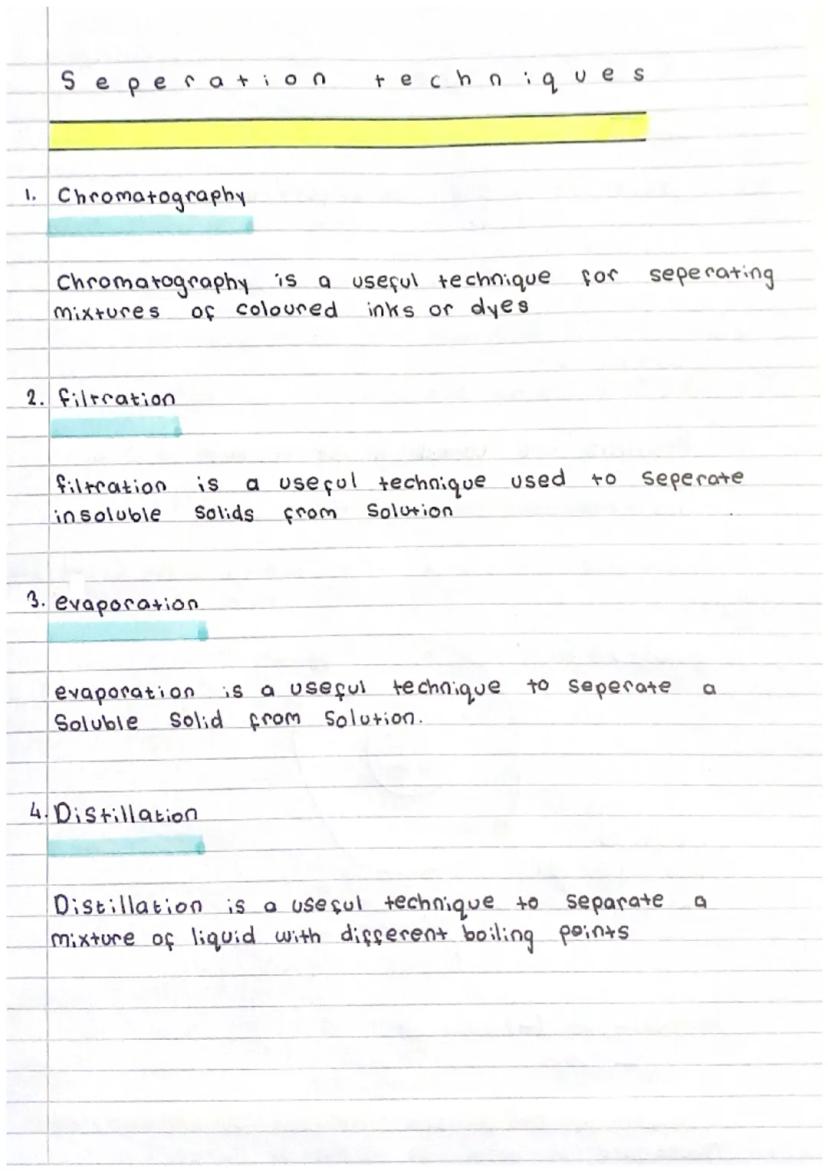 Seperation techniques
1. Chromatography
Chromatography is a useful technique for seperating
mixtures of coloured inks or dyes
2. filtration
filtration is a useful technique used to seperate
insoluble solids from solution
3. evaporation
evaporation is a useful technique to seperate a
soluble solid from solution.
4. Distillation
Distillation is a useful technique to separate a
mixture of liquid with different boiling points